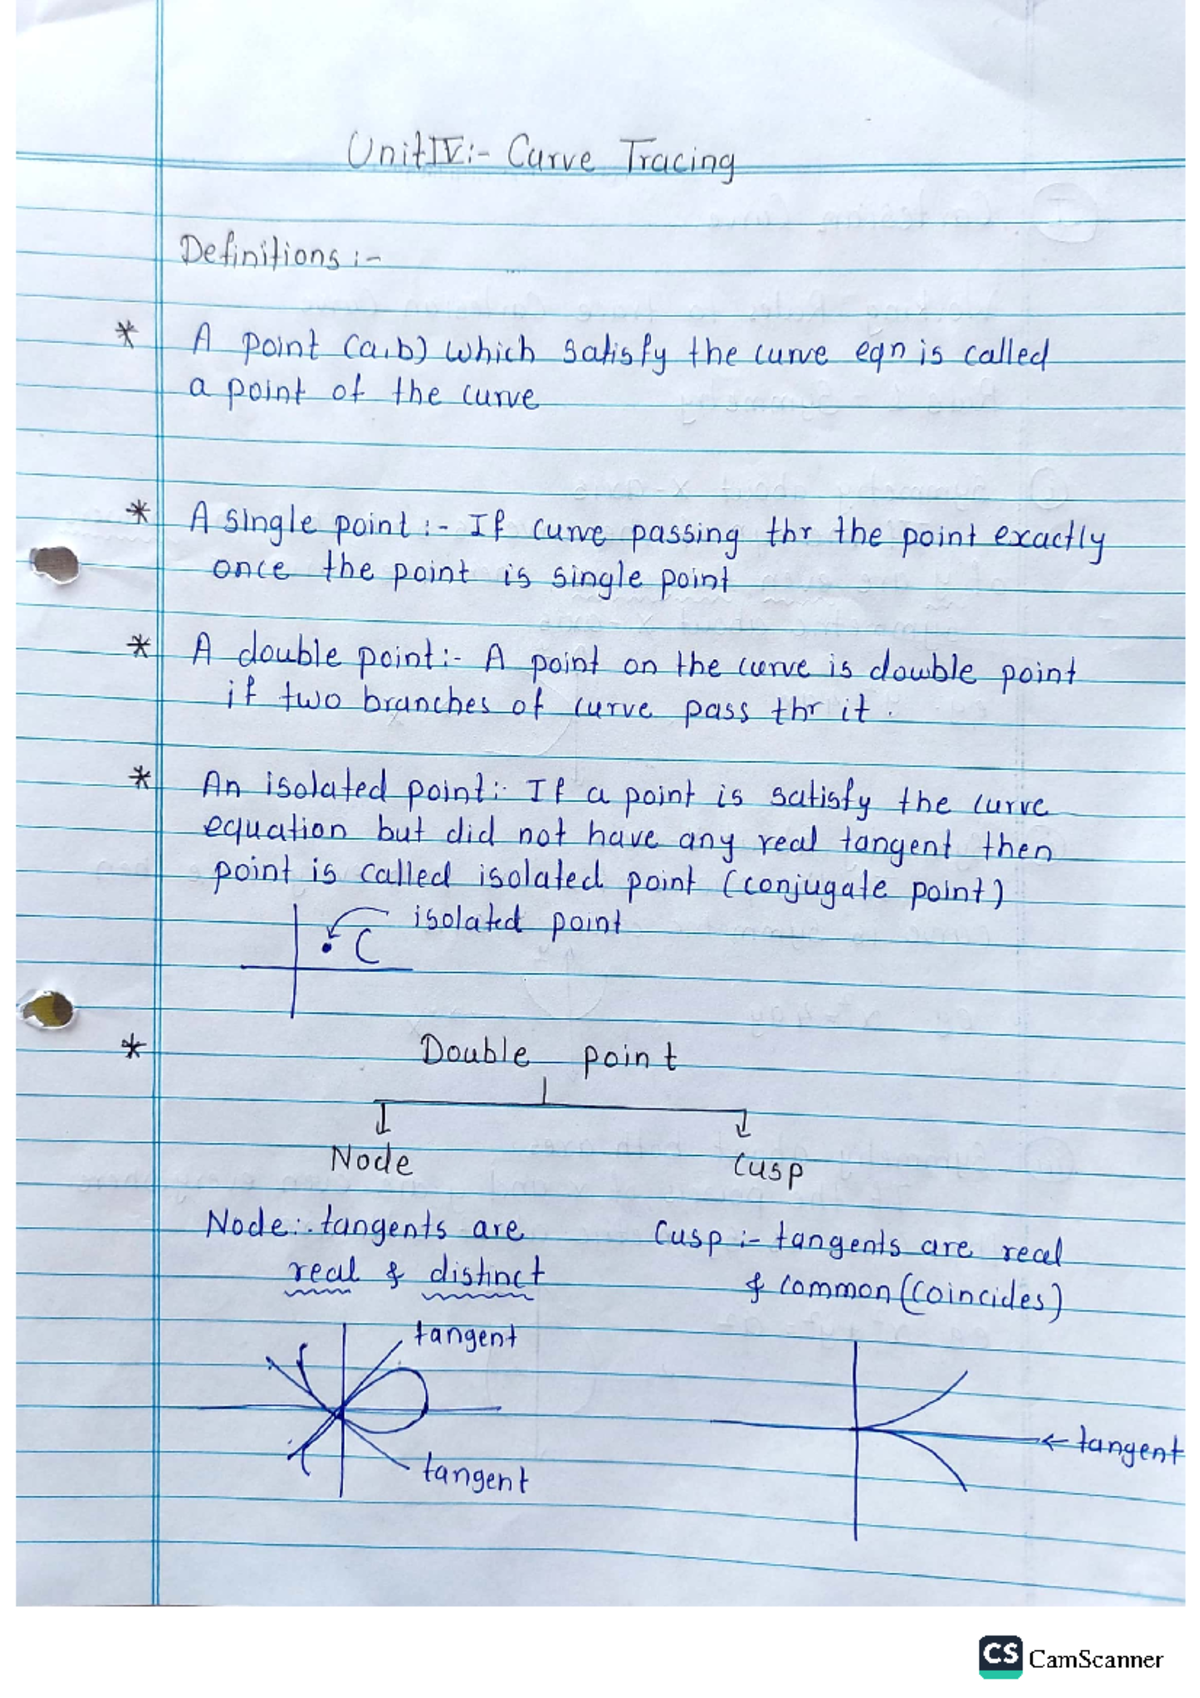 Unit IV:- Curve Tracing
Definitions :-
* A point (a,b) which satisfy the curve eqn is called
a point of the curve
* A single point :- If curve passing thr the point exactly
once the point is single point
* A double point:- A point on the curve is double point
if two branches of curve pass thr it.
* An isolated point:- If a point is satisfy the curve
equation but did not have any real tangent then
point is called isolated point (conjugate point)
isolated point
C
* Double point
Node Cusp
Node:- tangents are
real & distinct
Cusp :- tangents are real
& common (coincides)
tangent
tangent
tangent
CS CamScanner